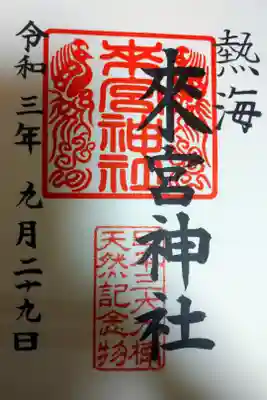 熱海
來宮神社
令和三年 九月二十九日
來宮神社
日本三大大楠
天然記念物